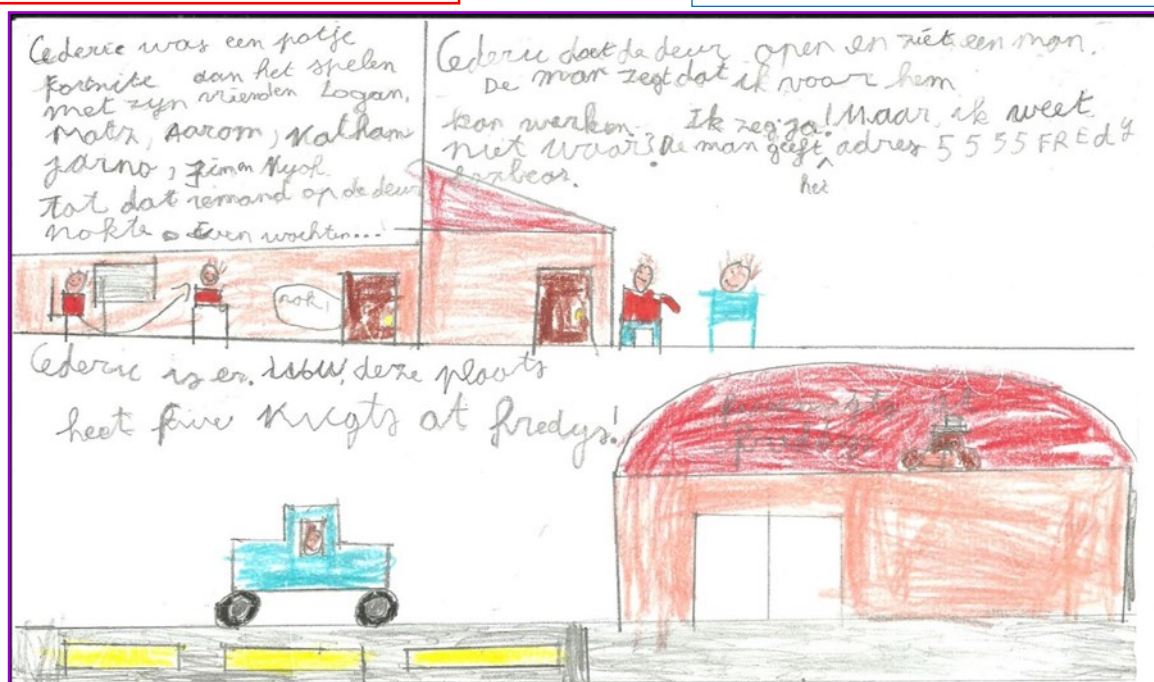 Cederic was een potje
Fortnite aan het spelen
met zijn vrienden Logan,
Matz, Aarom, Natham
Jarno, Jimen Nyoh.
Tot dat iemand op de deur
nokte. Even wachten...
nok!
Cederic doet de deur open en ziet een man.
De man zegt dat ik voor hem
kan werken. Ik zeg ja! Maar, ik weet
niet waar? De man geeft het adres 5 5 5 5 FREdy
Cederic is er. WoW, deze plaats
heet five Nugts at fredys!